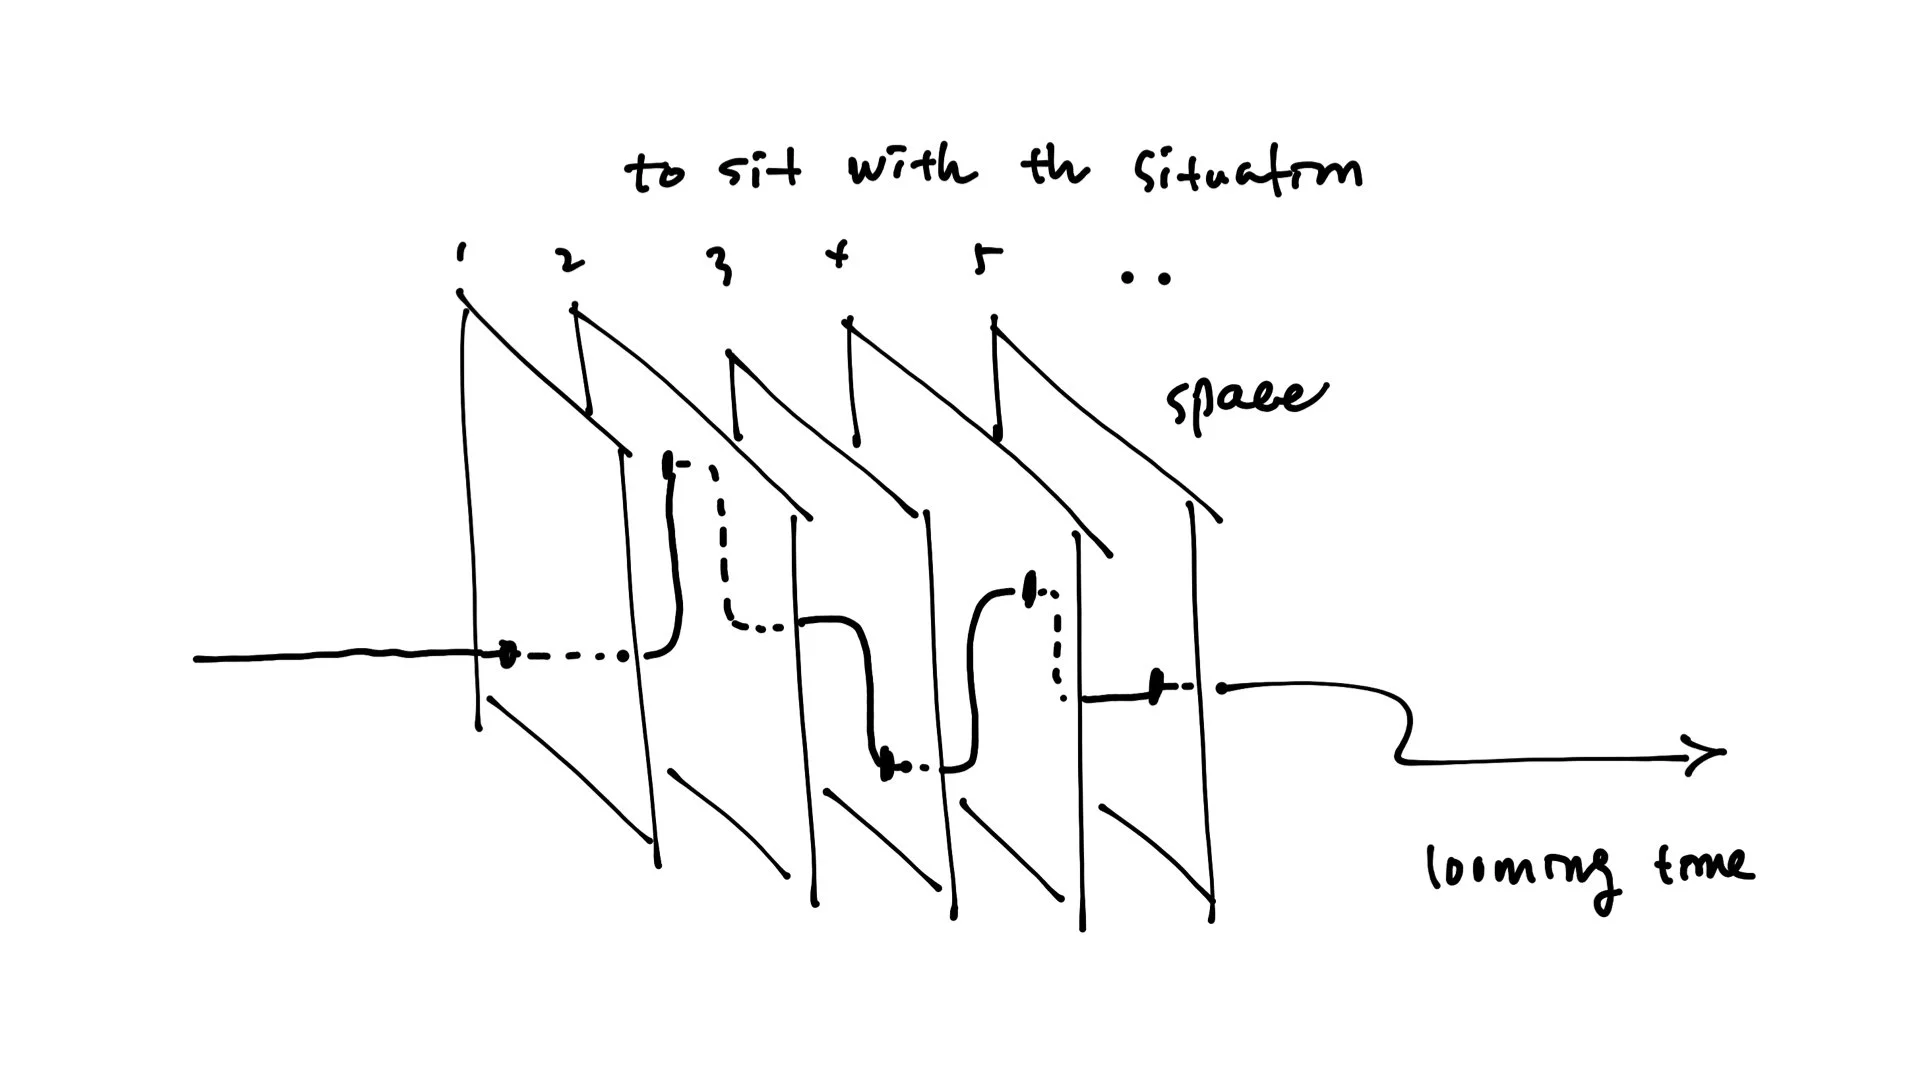 to sit with th situation
1 2 3 4 5 ..
space
looming time